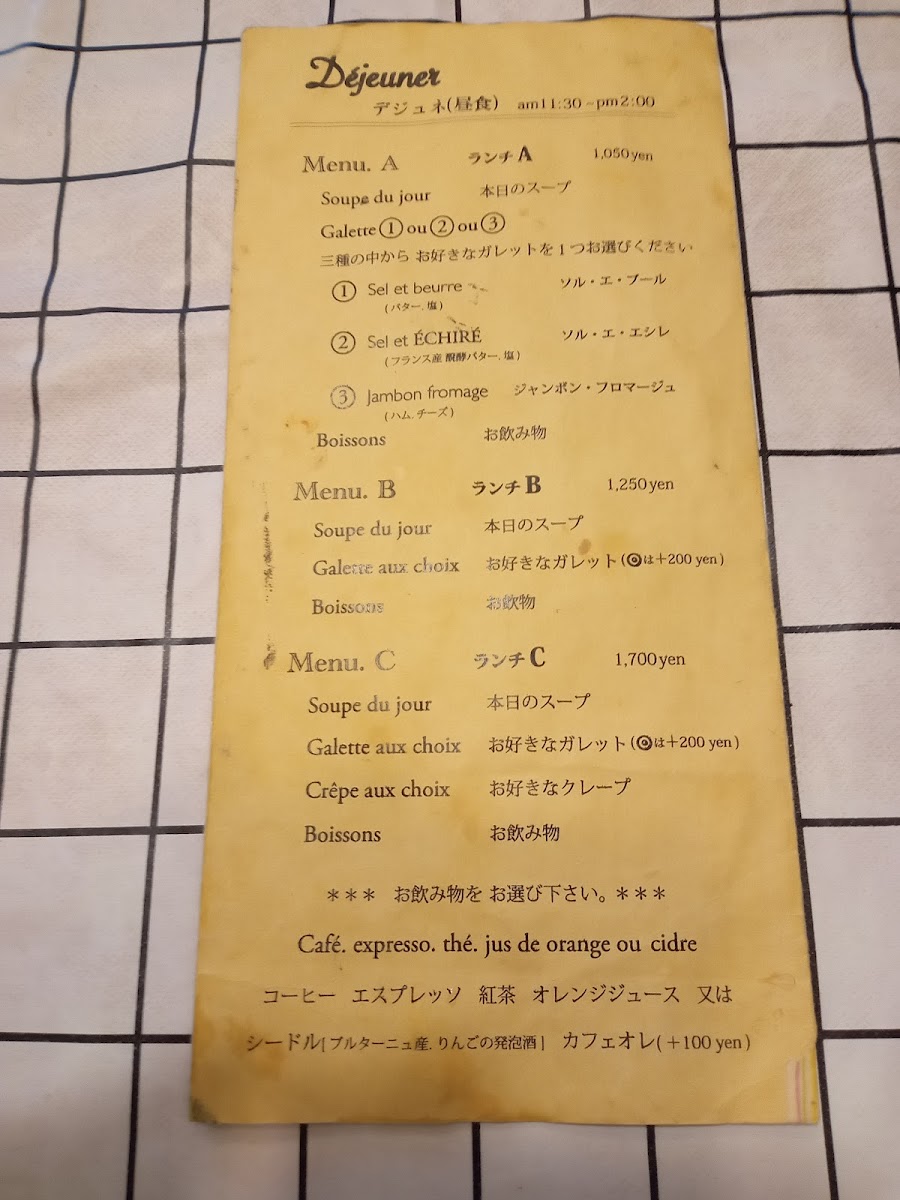 Déjeuner
デジュネ(昼食) am11:30~pm2:00
Menu. A ランチ A 1,050yen
Soupe du jour 本日のスープ
Galette ① ou ② ou ③
三種の中から お好きなガレットを1つお選びください
① Sel et beurre ソル・エ・ブール
(バター. 塩)
② Sel et ÉCHIRÉ ソル・エ・エシレ
(フランス産 醗酵バター. 塩)
③ Jambon fromage ジャンボン・フロマージュ
(ハム. チーズ)
Boissons お飲み物
Menu. B ランチ B 1,250yen
Soupe du jour 本日のスープ
Galette aux choix お好きなガレット(◎は+200 yen)
Boissons お飲物
Menu. C ランチ C 1,700yen
Soupe du jour 本日のスープ
Galette aux choix お好きなガレット(◎は+200 yen)
Crêpe aux choix お好きなクレープ
Boissons お飲み物
*** お飲み物を お選び下さい。***
Café. expresso. thé. jus de orange ou cidre
コーヒー エスプレッソ 紅茶 オレンジジュース 又は
シードル[ブルターニュ産. りんごの発泡酒] カフェオレ(+100 yen)